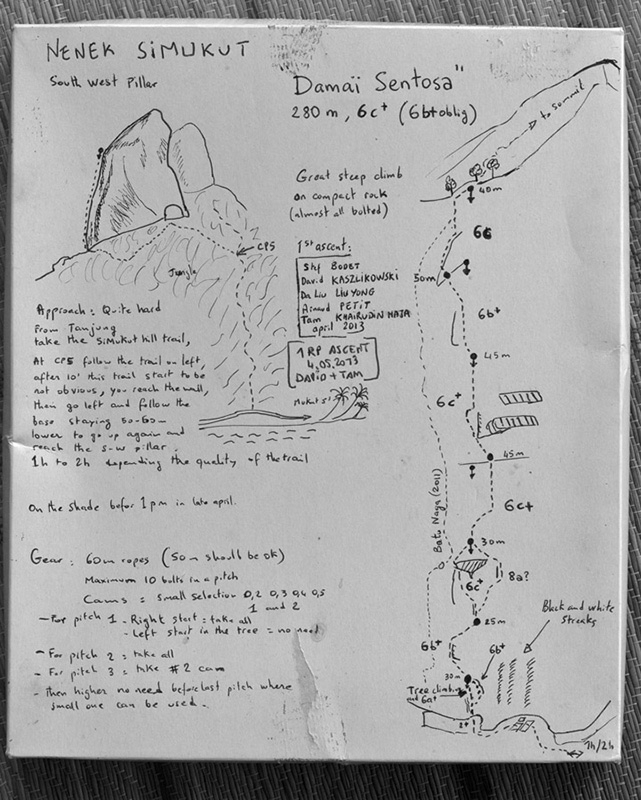 NENEK SiMUKUT
South West Pillar
"Damaï Sentosa"
280 m, 6c+ (6b+oblig)
Great steep climb
on compact rock
(almost all bolted)
1st ascent:
Stef BODET
David KASZLIKOWSKI
Da Liu LIU YONG
Arnaud PETIT
Tam KHAIRUDIN HAJA
april 2013
1 RP ASCENT
4.05.2013
DAVID + TAM
CP5
Jungle
Mukut
Approach: Quite hard
From Tanjung
take the SiMUKUt hill trail,
At CP5 follow the trail on left,
after 10' this trail start to be
not obvious, you reach the wall,
then go left and follow the
base staying 50-60m
lower to go up again and
reach the S-W pillar.
1h to 2h depending the quality of the trail
On the shade befor 1 pm in late april.
Gear: 60m ropes (50m should be ok)
Maximum 10 bolts in a pitch
Cams = Small selection 0,2 0,3 0,4 0,5
1 and 2
- For pitch 1 - Right start: take all
- Left start in the tree = no need
- For pitch 2 = take all
- For pitch 3 = take #2 cam
- then higher no need before last pitch where
small one can be used.
to summit
40m
50m
6b+
45m
6c+
45m
6c+
Batu Naga (2011)
30m
6c+
8a?
25m
Black and white
streaks
6b+
6b+
30m
Tree climbing
and 6a+
1h/2h